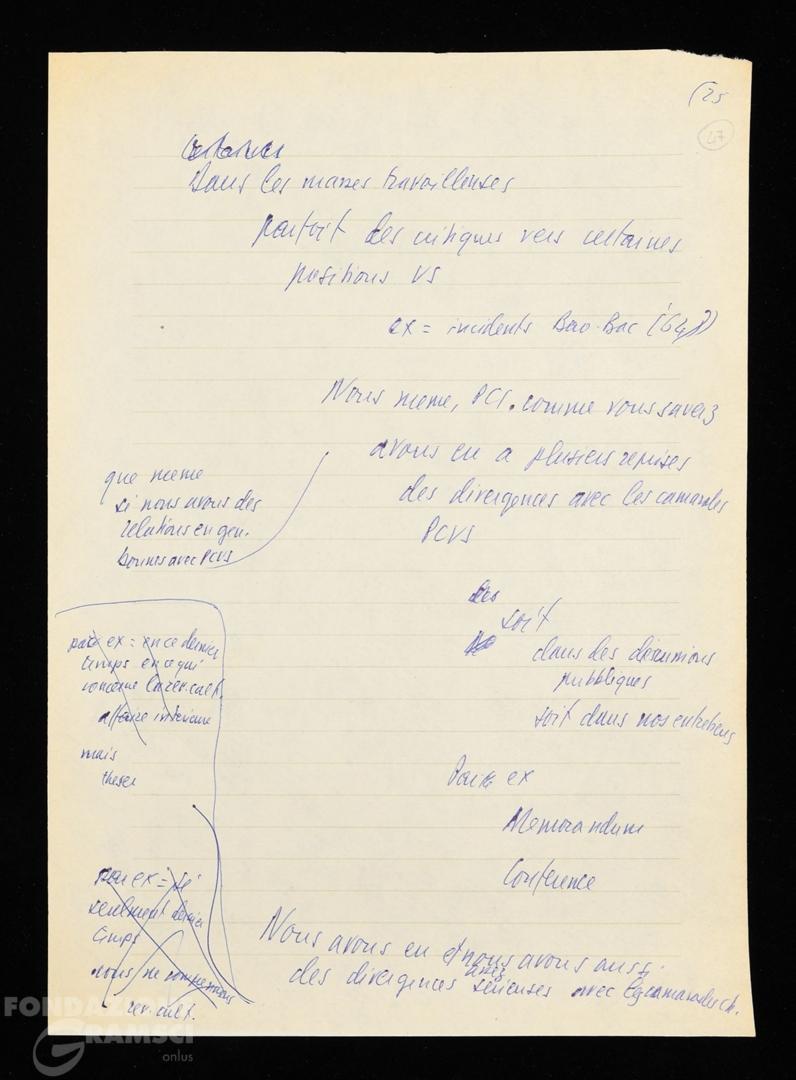 (25
47
Dans les masses travailleuses
partoit des critiques vers certaines
positions US
ex = incidents Bac ('64?)
Nous meme, PCI. comme vous savez
avons eu a plusieurs reprises
des divergences avec les camarades
PCUS
que meme
si nous avons des
relations en gen.
bonnes avec PCUS
Les
soit
dans des discussions
pubbliques
soit dans nos entretiens
par ex = en ce dernier
temps en ce qui
concerne la rev. cult.
affaire interieure
mais
theses
Par ex
Memorandum
Conference
pour ex =
seulement dernier
temps
nous ne comprenons
rev. cult.
Nous avons eu et nous avons aussi
des divergences assez serieuses avec les camarades ch.
FONDAZIONE
GRAMSCI
onlus